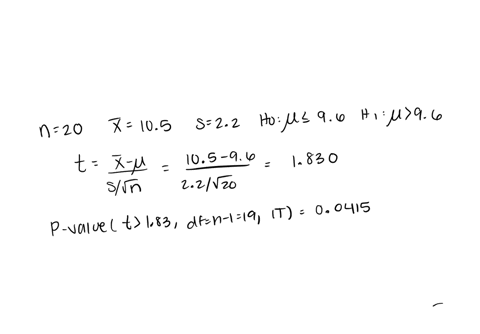 n=20 x̄=10.5 S=2.2 H0: μ≤9.6 H1: μ>9.6
t = x̄-μ / s/√n = 10.5-9.6 / 2.2/√20 = 1.830
P-value( t>1.83, df=n-1=19, 1T) = 0.0415